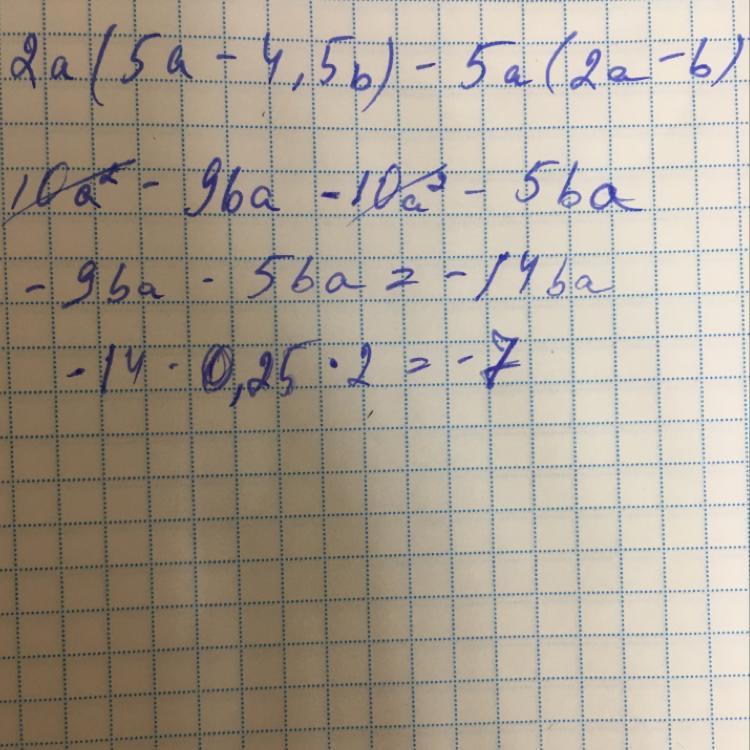 2a(5a - 4,5b) - 5a(2a - b)
10a² - 9ba - 10a² - 5ba
- 9ba - 5ba = -14ba
-14 · 0,25 · 2 = -7